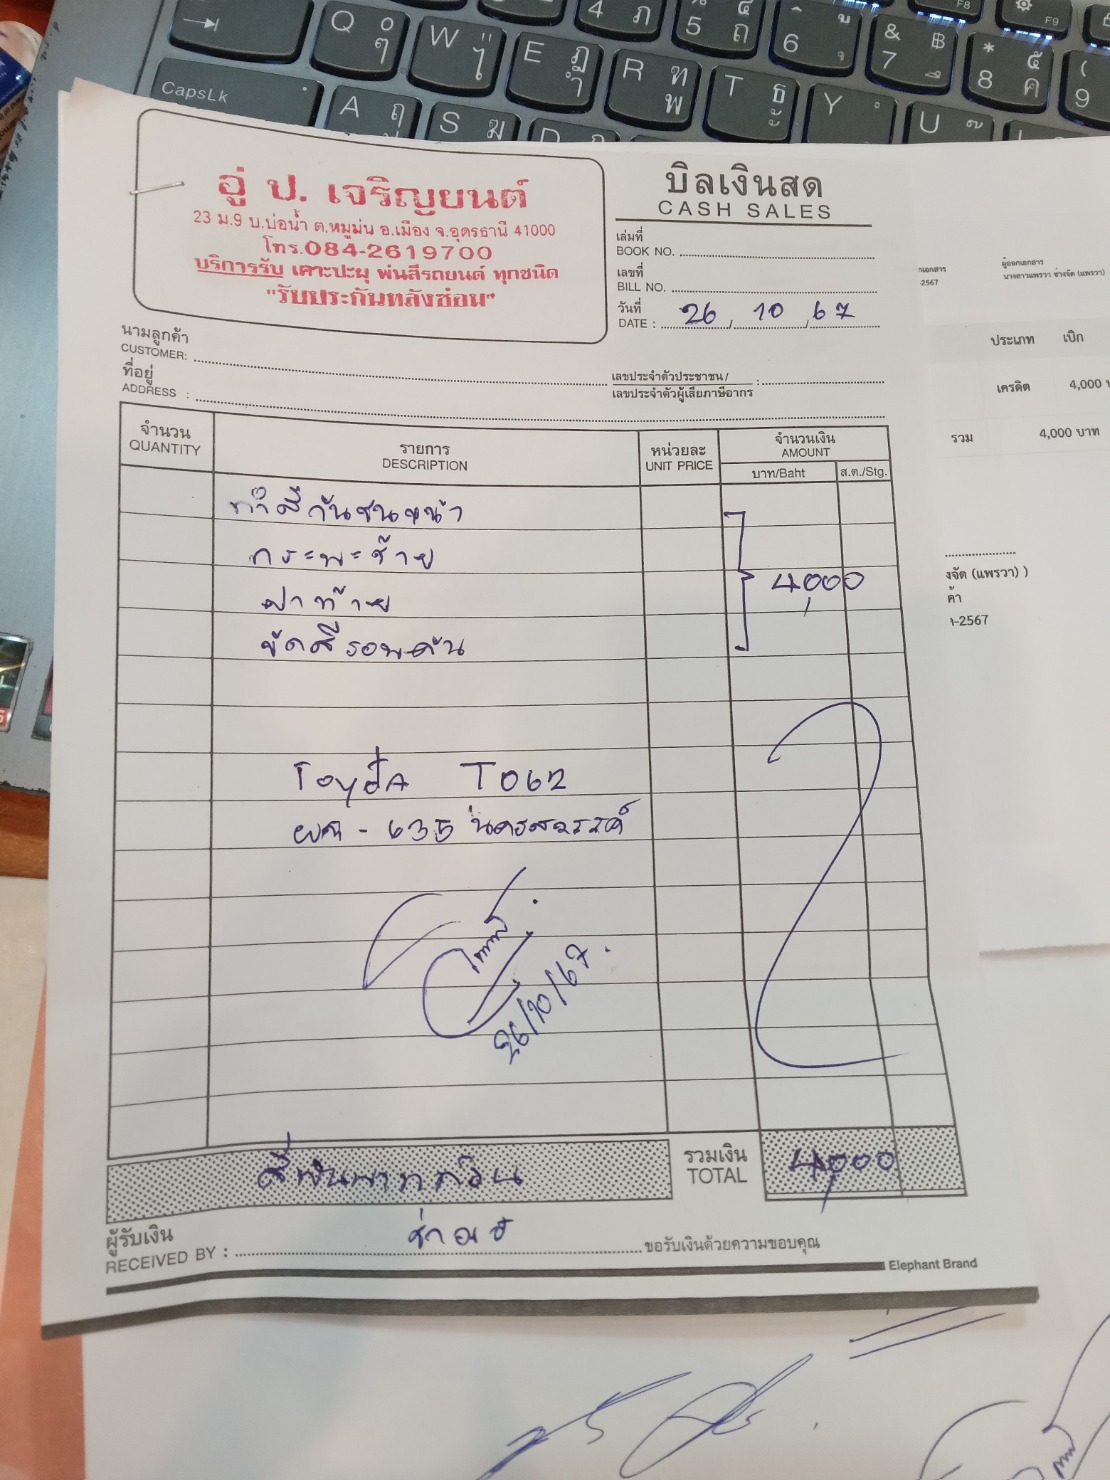 อู่ ป. เจริญยนต์
23 ม.9 บ.บ่อน้ำ ต.หมูม่น อ.เมือง จ.อุดรธานี 41000
โทร.084-2619700
บริการรับ เคาะปะผุ พ่นสีรถยนต์ ทุกชนิด
"รับประกันหลังซ่อม"
บิลเงินสด
CASH SALES
เล่มที่
BOOK NO.
เลขที่
BILL NO.
วันที่
DATE : 26 / 10 / 67
นามลูกค้า
CUSTOMER:
ที่อยู่
ADDRESS :
เลขประจำตัวประชาชน/
เลขประจำตัวผู้เสียภาษีอากร :
จำนวน
QUANTITY
รายการ
DESCRIPTION
หน่วยละ
UNIT PRICE
จำนวนเงิน
AMOUNT
บาท/Baht
ส.ต./Stg.
ทำสีกันชนหน้า
กระพะซ้าย
ฝาท้าย
ขัดสีรอบคัน
4,000
Toyota T062
ผต - 635 นครสวรรค์
26/10/67
สี่พันบาทถ้วน
รวมเงิน
TOTAL
4,000
ผู้รับเงิน
RECEIVED BY :
ขอรับเงินด้วยความขอบคุณ
Elephant Brand
2567
ผู้ออกเอกสาร
นางสาวแพรวา ช่างจัด (แพรวา)
ประเภท เบิก
เครดิต 4,000
รวม 4,000 บาท
งจัด (แพรวา) )
ค้า
-2567
CapsLk
Q
W
E
R
T
Y
U
A
S
4
5
6
7
8
9
F8
F9